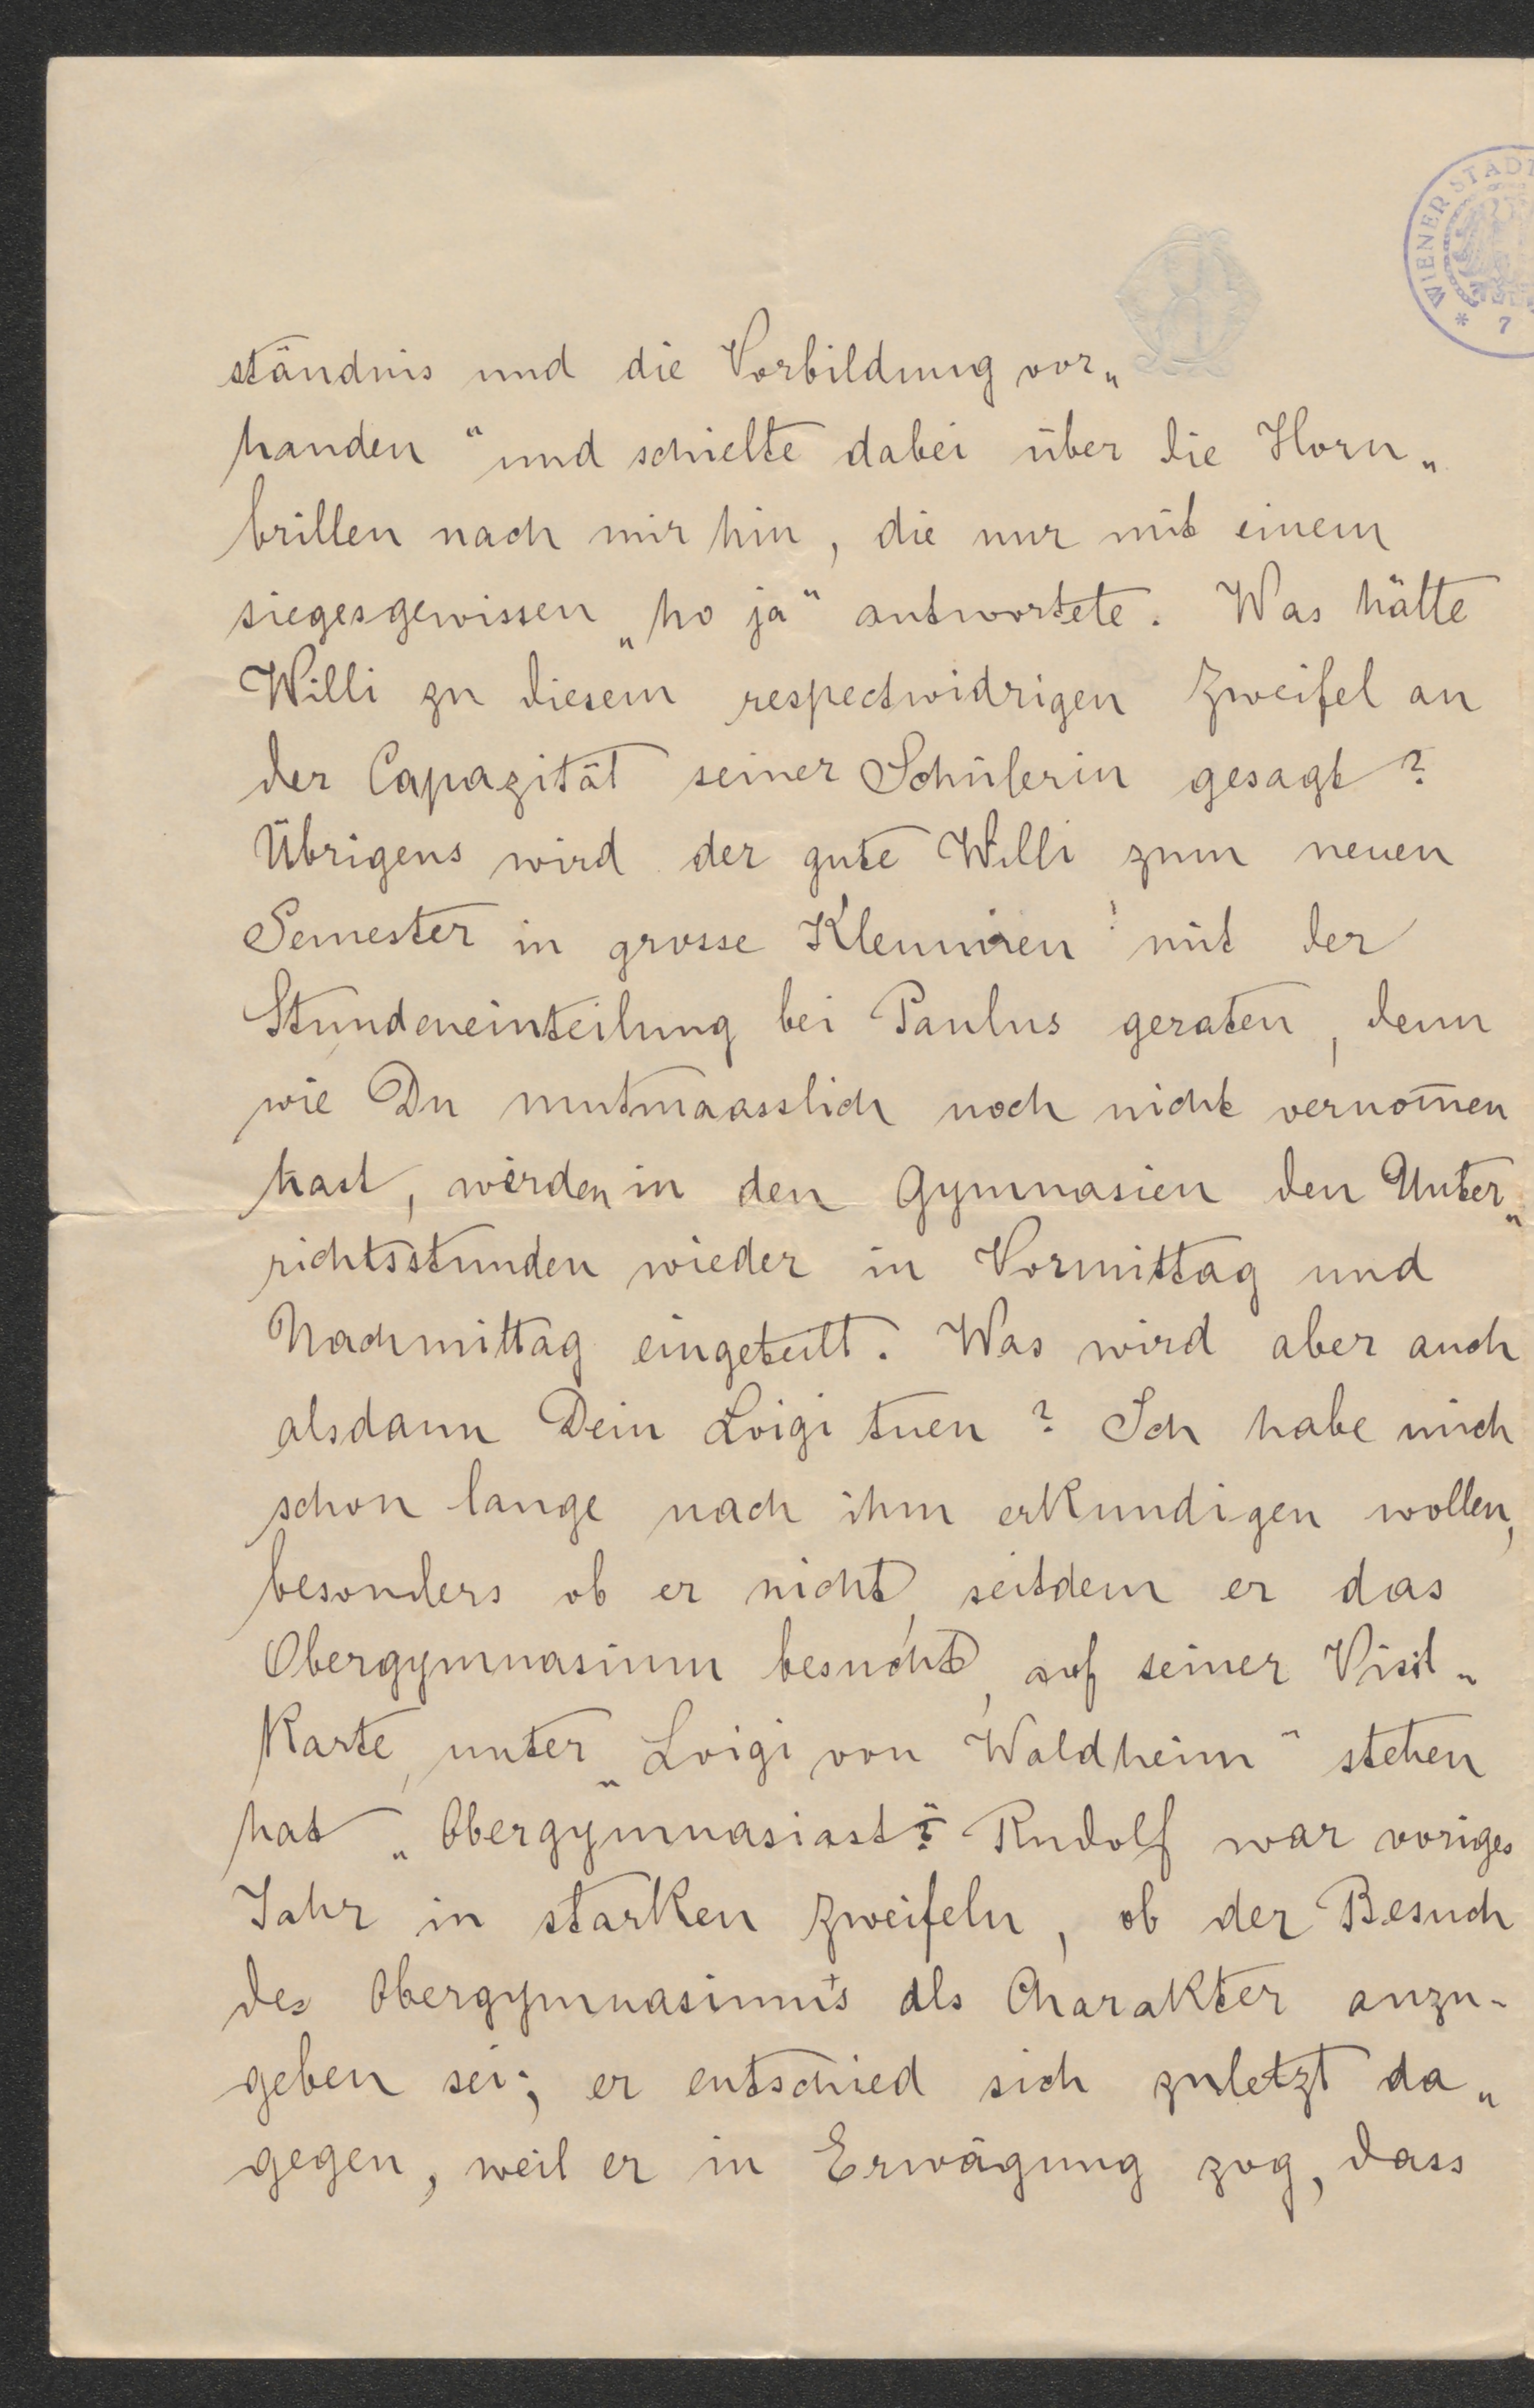 WIENER STADT
* 7
ständnis und die Vorbildung vor„
handen “ und schielte dabei über die Horn„
brillen nach mir hin, die nur mit einem
siegesgewissen „ho ja“ antwortete. Was hätte
Willi zu diesem respectwidrigen Zweifel an
der Capazität seiner Schülerin gesagt?
Übrigens wird der gute Willi zum neuen
Semester in grosse Klemmen mit der
Stundeneinteilung bei Paulus geraten, denn
wie Du mutmaasslich noch nicht vernom̄en
hast, werden in den Gymnasien den Unter„
richtsstunden wieder in Vormittag und
Nachmittag eingeteilt. Was wird aber auch
alsdann Dein Loigi tuen? Ich habe mich
schon lange nach ihm erkundigen wollen,
besonders ob er nicht, seitdem er das
Obergymnasium besucht, auf seiner Visit„
Karte, unter „Loigi von Waldheim“ stehen
hat „Obergymnasiast“? Rudolf war voriges
Jahr in starken Zweifeln, ob der Besuch
des Obergymnasiums als Charakter anzu-
geben sei; er entschied sich zuletzt da„
gegen, weil er in Erwägung zog, dass